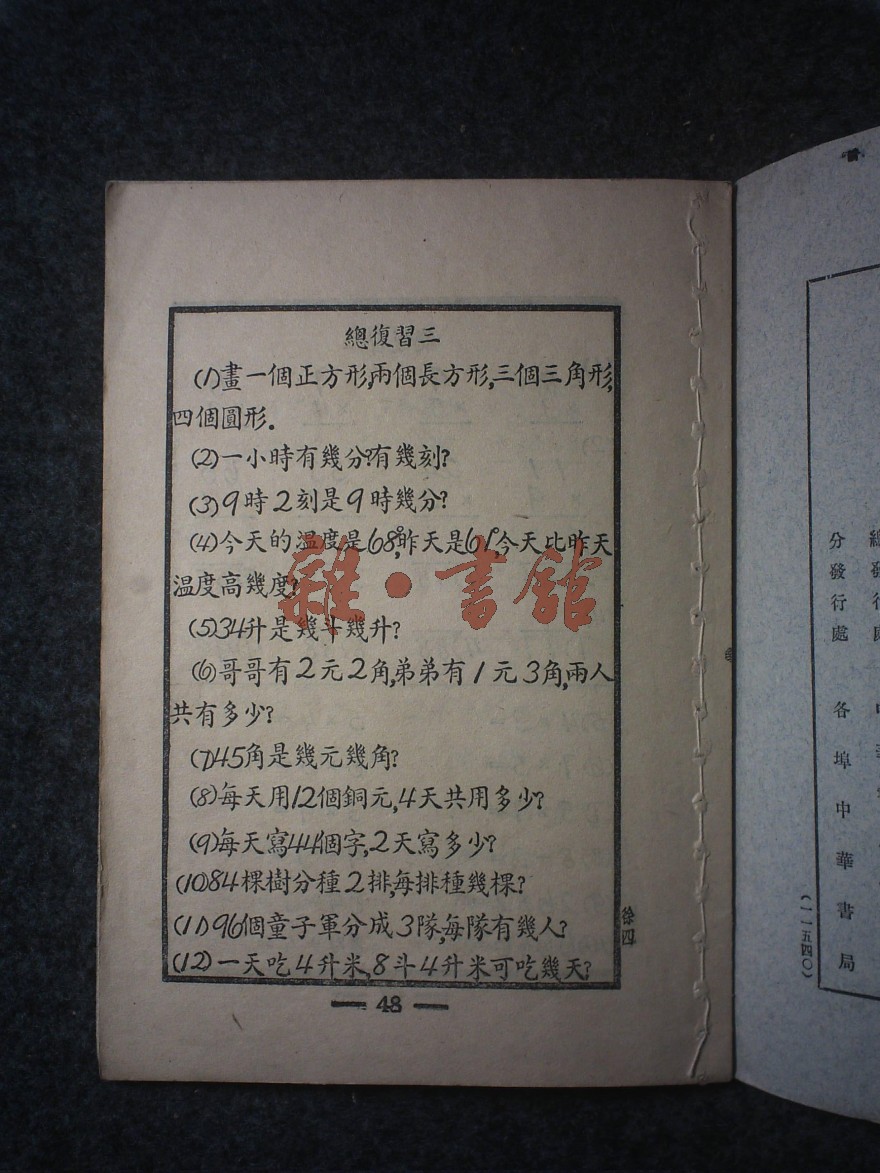 總復習三
(1)畫一個正方形,兩個長方形,三個三角形,
四個圓形.
(2)一小時有幾分?有幾刻?
(3)9時2刻是9時幾分?
(4)今天的溫度是68°,昨天是61°,今天比昨天
溫度高幾度?
(5)34升是幾斗幾升?
(6)哥哥有2元2角,弟弟有1元3角,兩人
共有多少?
(7)45角是幾元幾角?
(8)每天用12個銅元,4天共用多少?
(9)每天寫44個字,2天寫多少?
(10)84棵樹分種2排,每排種幾棵?
(11)96個童子軍分成3隊,每隊有幾人?
(12)一天吃4升米,8斗4升米可吃幾天?
徐四
48
雜·書館
分發行處 各埠中華書局
(一一五四〇)